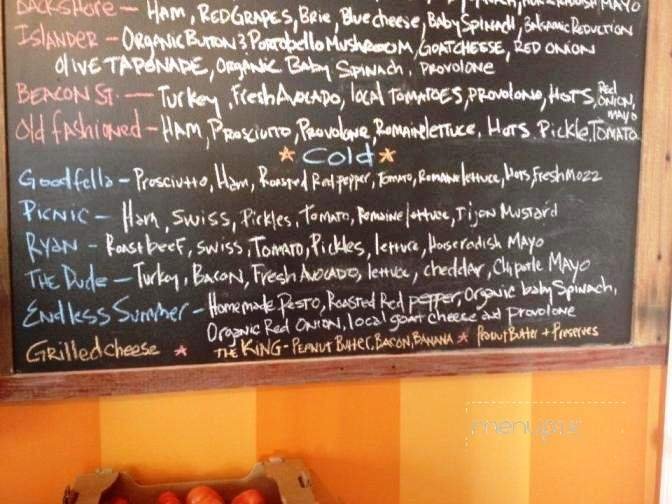 BACKSHORE — HAM, RED GRAPES, BRIE, Blue cheese, BABY SPINACH, BALSAMIC REDUCTION
MAYO
ISLANDER - ORGANIC BUTTON & PORTOBELLO MUSHROOM, GOAT CHEESE, RED ONION
OLIVE TAPONADE, ORGANIC BABY SPINACH, PROVOLONE
BEACON ST. — TURKEY, FRESH AVOCADO, LOCAL TOMATOES, PROVOLONE, HOTS, RED ONION, MAYO
Old fashioned — HAM, PROSCIUTTO, PROVOLONE, ROMAINE LETTUCE, HOTS, PICKLE, TOMATO
★ Cold ★
Goodfella — Prosciutto, Ham, Roasted Red pepper, Tomato, Romaine lettuce, Hots, Fresh Mozz
PICNIC — Ham, SWISS, Pickles, Tomato, Romaine lettuce, Dijon Mustard
RYAN - Roast beef, SWISS, Tomato, Pickles, lettuce, Horseradish Mayo
THE Dude — Turkey, BACON, Fresh AVOCADO, lettuce, cheddar, Chipotle MAYO
Endless Summer — Homemade Pesto, Roasted Red pepper, Organic baby Spinach,
Organic Red ONION, local goat cheese and provolone
Grilled cheese ★ THE KING - PEANUT Butter, BACON, BANANA ★ Peanut Butter + Preserves
menupix